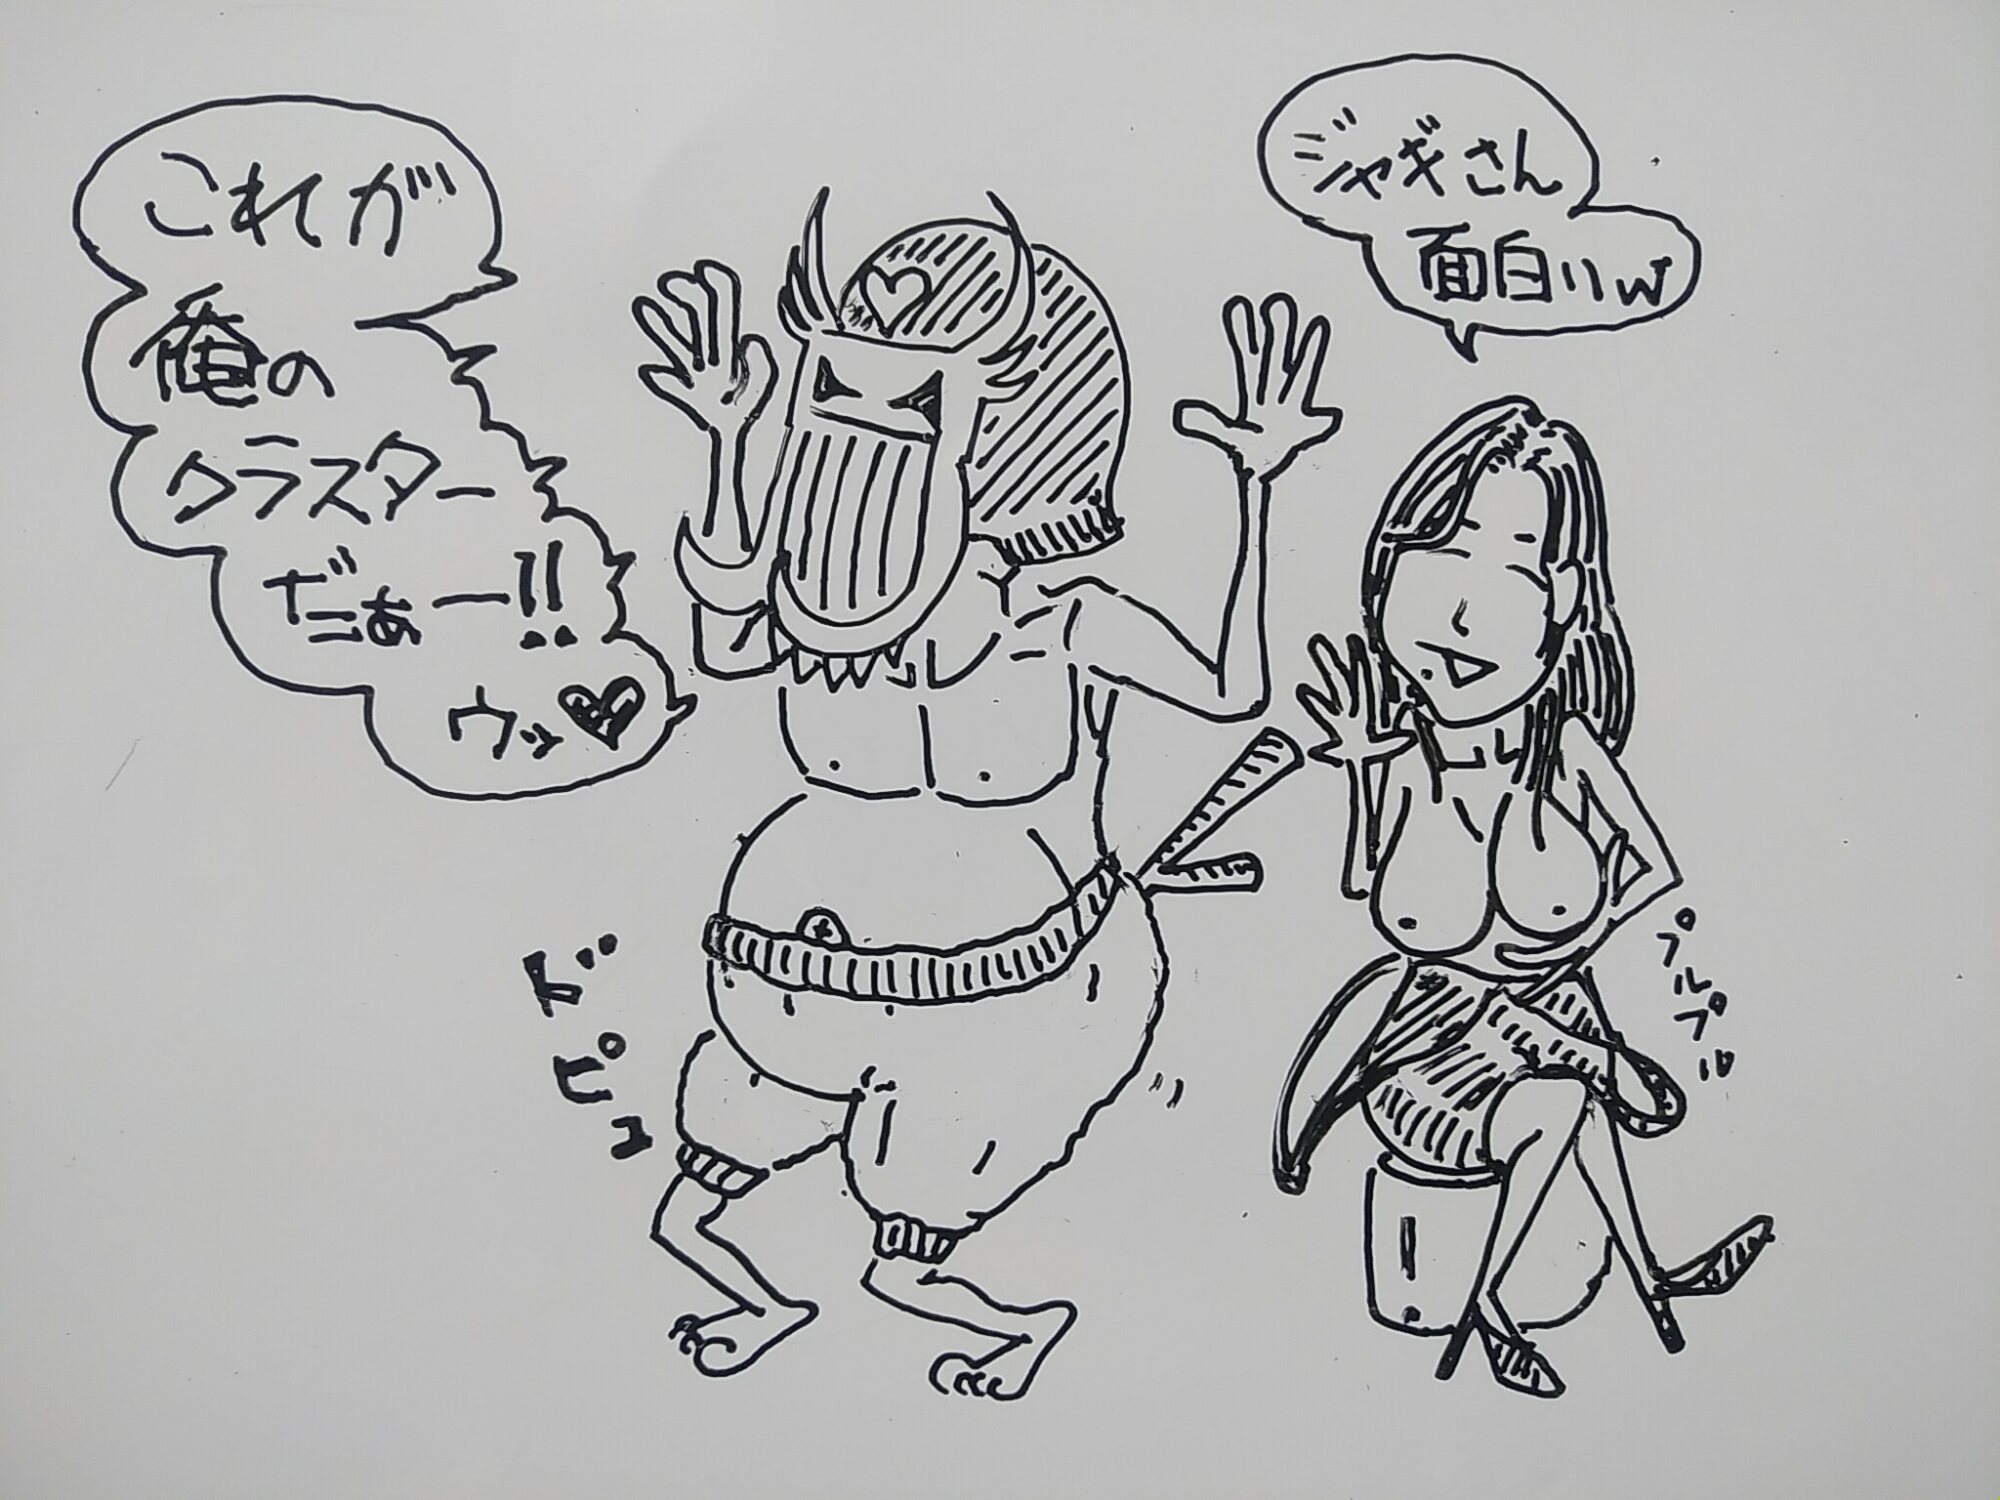 これが
俺の
クラスター
だぁー!!
ウッ♥
ジャギさん
面白いw
ドピュ
プルプル